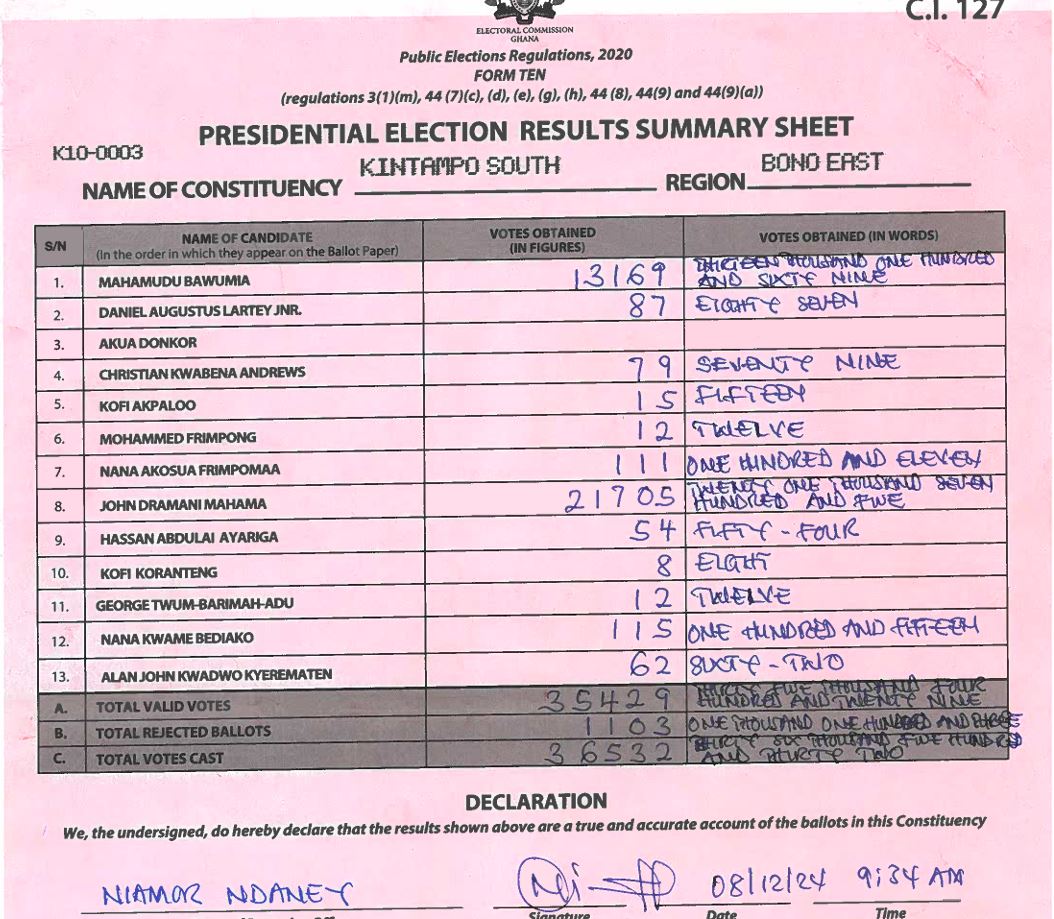 C.I. 127
ELECTORAL COMMISSION
GHANA
Public Elections Regulations, 2020
FORM TEN
(regulations 3(1)(m), 44 (7)(c), (d), (e), (g), (h), 44 (8), 44(9) and 44(9)(a))
PRESIDENTIAL ELECTION RESULTS SUMMARY SHEET
K10-0003
NAME OF CONSTITUENCY KINTAMPO SOUTH REGION BONO EAST
S/N NAME OF CANDIDATE (In the order in which they appear on the Ballot Paper) VOTES OBTAINED (IN FIGURES) VOTES OBTAINED (IN WORDS)
1. MAHAMUDU BAWUMIA 13169 THIRTEEN THOUSAND ONE HUNDRED AND SIXTY NINE
2. DANIEL AUGUSTUS LARTEY JNR. 87 EIGHTY SEVEN
3. AKUA DONKOR
4. CHRISTIAN KWABENA ANDREWS 79 SEVENTY NINE
5. KOFI AKPALOO 15 FIFTEEN
6. MOHAMMED FRIMPONG 12 TWELVE
7. NANA AKOSUA FRIMPOMAA 111 ONE HUNDRED AND ELEVEN
8. JOHN DRAMANI MAHAMA 21705 TWENTY ONE THOUSAND SEVEN HUNDRED AND FIVE
9. HASSAN ABDULAI AYARIGA 54 FIFTY-FOUR
10. KOFI KORANTENG 8 EIGHT
11. GEORGE TWUM-BARIMAH-ADU 12 TWELVE
12. NANA KWAME BEDIAKO 115 ONE HUNDRED AND FIFTEEN
13. ALAN JOHN KWADWO KYEREMATEN 62 SIXTY-TWO
A. TOTAL VALID VOTES 35429 THIRTY FIVE THOUSAND FOUR HUNDRED AND TWENTY NINE
B. TOTAL REJECTED BALLOTS 1103 ONE THOUSAND ONE HUNDRED AND THREE
C. TOTAL VOTES CAST 36532 THIRTY SIX THOUSAND FIVE HUNDRED AND THIRTY TWO
DECLARATION
We, the undersigned, do hereby declare that the results shown above are a true and accurate account of the ballots in this Constituency
NIAMOR NDANEY 08/12/24 9:34 AM
Signature Date Time